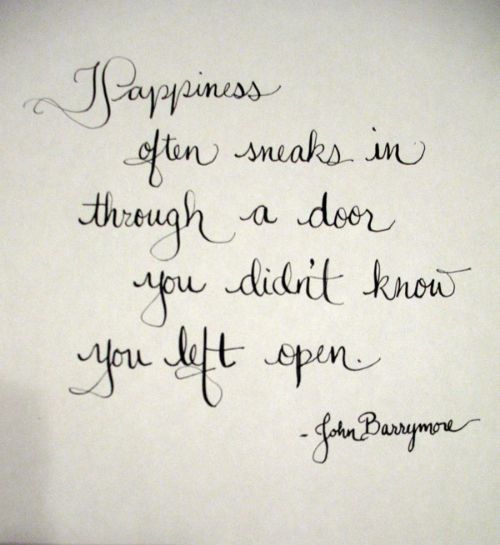 Happiness
often sneaks in
through a door
you didn't know
you left open.
- John Barrymore